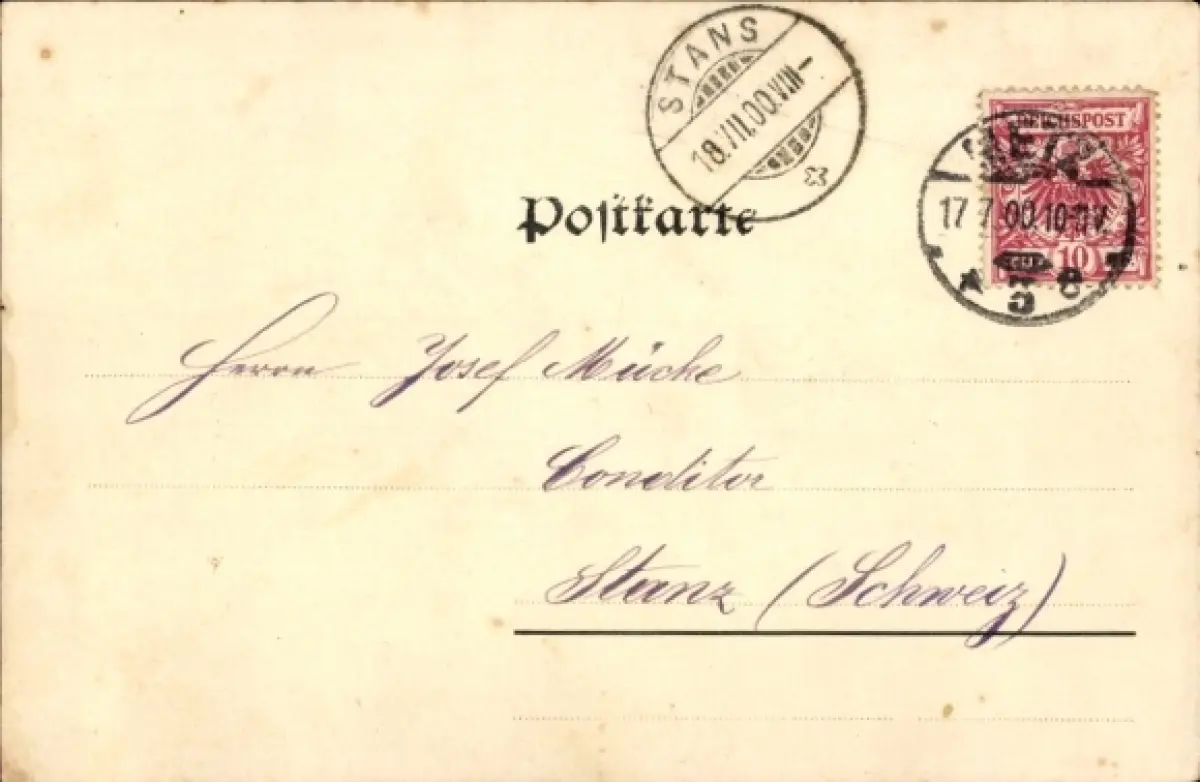 STANS
18.VII.00.VIII–
REICHSPOST
METZ
17 7.00.10-11V.
10
* 5 e
Postkarte
Herrn Josef Mücke
Conditor
Stanz (Schweiz)